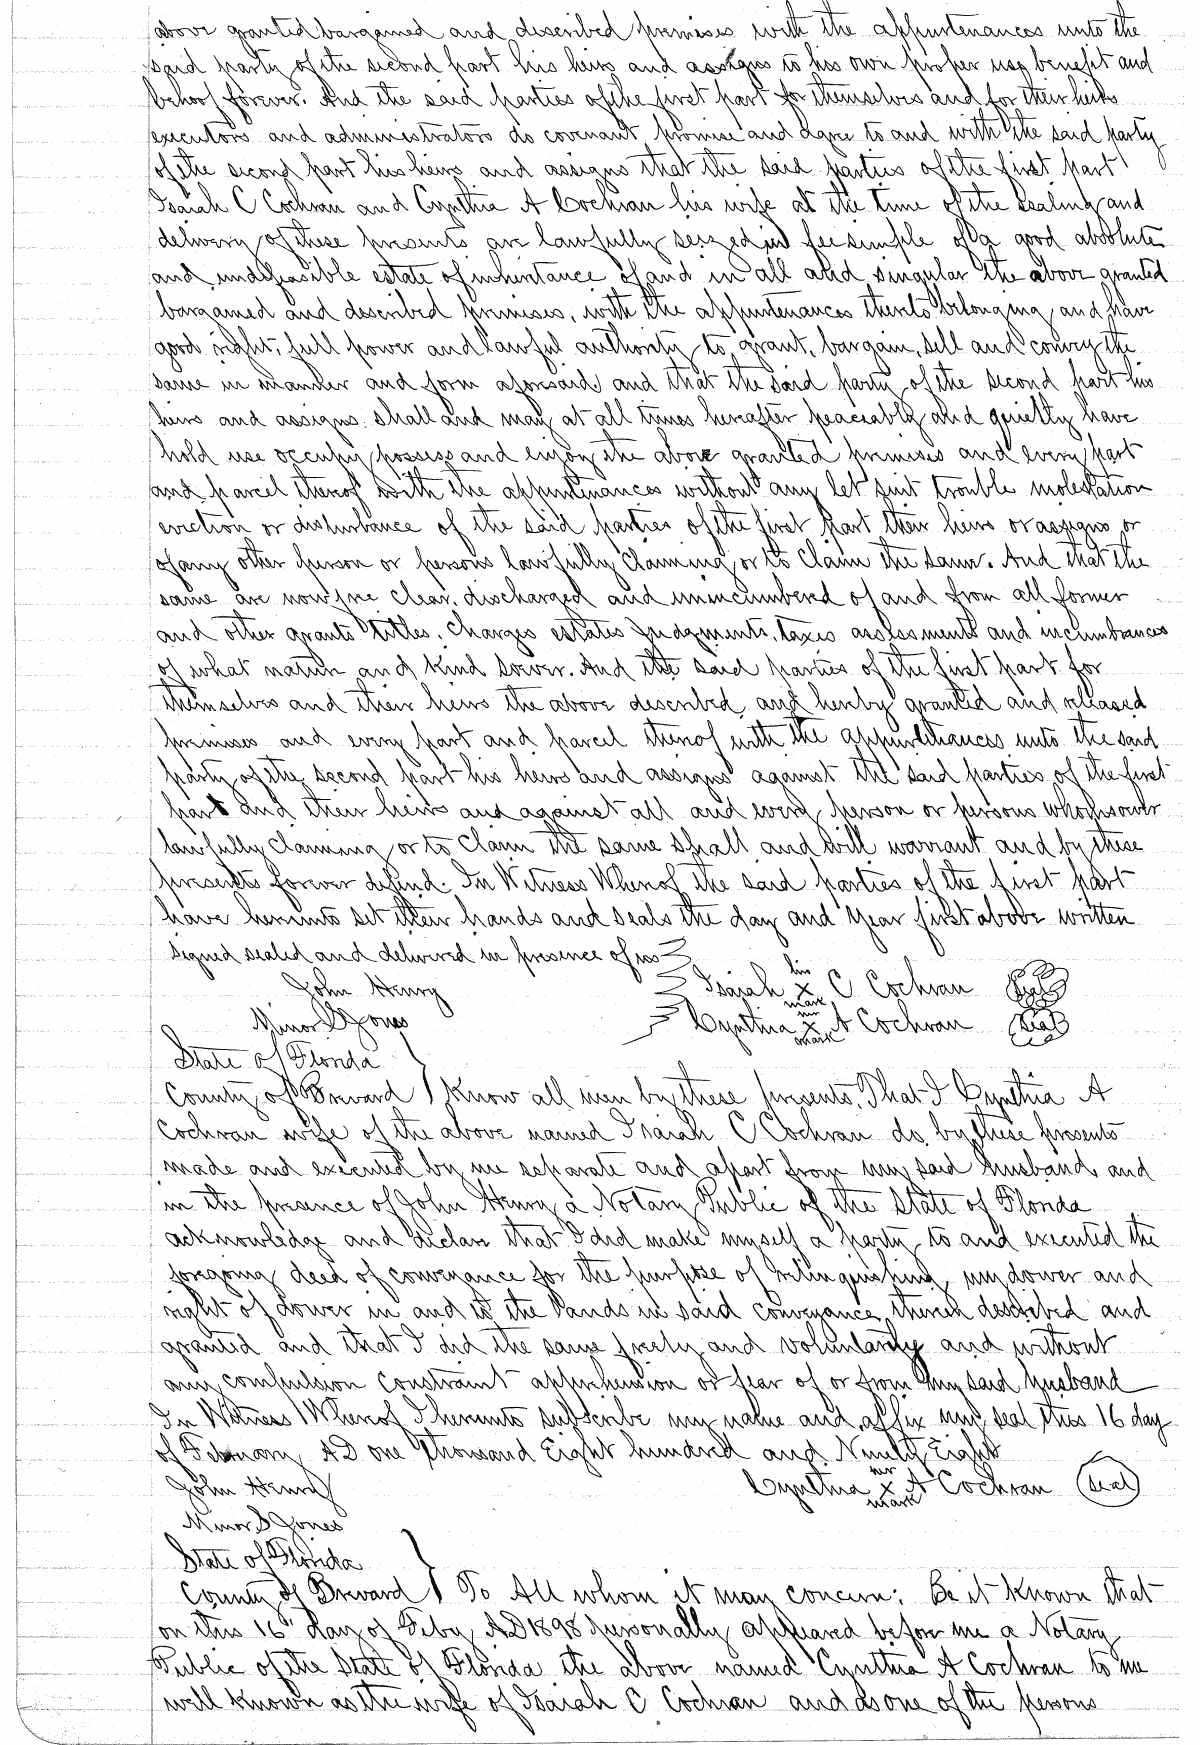 above granted bargained and described premises with the appurtenances unto the
said party of the second part his heirs and assigns to his own proper use benefit and
behoof forever. And the said parties of the first part for themselves and for their heirs
executors and administrators do covenant promise and agree to and with the said party
of the second part his heirs and assigns that the said parties of the first part
Isaiah C Cochran and Cynthia A Cochran his wife at the time of the sealing and
delivery of these presents are lawfully seized in fee simple of a good absolute
and indefeasible estate of inheritance of and in all and singular the above granted
bargained and described premises, with the appurtenances thereto belonging and have
good right, full power and lawful authority to grant, bargain, sell and convey the
same in manner and form aforesaid and that the said party of the second part his
heirs and assigns shall and may at all times hereafter peaceably and quietly have
hold use occupy possess and enjoy the above granted premises and every part
and parcel thereof with the appurtenances without any let suit trouble molestation
eviction or disturbance of the said parties of the first part their heirs or assigns or
of any other person or persons lawfully claiming or to claim the same. And that the
same are now free clear, discharged and unincumbered of and from all former
and other grants titles, charges estates judgments, taxes assessments and incumbrances
of what nature and kind soever. And the said parties of the first part for
themselves and their heirs the above described and hereby granted and released
premises and every part and parcel thereof with the appurtenances unto the said
party of the second part his heirs and assigns against the said parties of the first
part and their heirs and against all and every person or persons whomsoever
lawfully claiming or to claim the same shall and will warrant and by these
presents forever defend. In Witness Whereof the said parties of the first part
have hereunto set their hands and seals the day and year first above written
signed sealed and delivered in presence of us
John Henry
Minor S Jones
his
Isaiah x C Cochran Seal
mark
her
Cynthia x A Cochran Seal
mark
State of Florida
County of Brevard } Know all men by these presents, That I Cynthia A
Cochran wife of the above named Isaiah C Cochran do by these presents
made and executed by me separate and apart from my said husband and
in the presence of John Henry a Notary Public of the State of Florida
acknowledge and declare that I did make myself a party to and executed the
foregoing deed of conveyance for the purpose of relinquishing my dower and
right of dower in and to the lands in said conveyance therein described and
granted and that I did the same freely and voluntarily and without
any compulsion constraint apprehension or fear of or from my said husband
In Witness Whereof I hereunto subscribe my name and affix my seal this 16 day
of February AD one thousand Eight hundred and Ninety Eight
John Henry
her
Cynthia x A Cochran Seal
mark
Minor S Jones
State of Florida
County of Brevard } To All whom it may concern: Be it known that
on this 16" day of Feby AD 1898 personally appeared before me a Notary
Public of the State of Florida the above named Cynthia A Cochran to me
well known as the wife of Isaiah C Cochran and as one of the persons